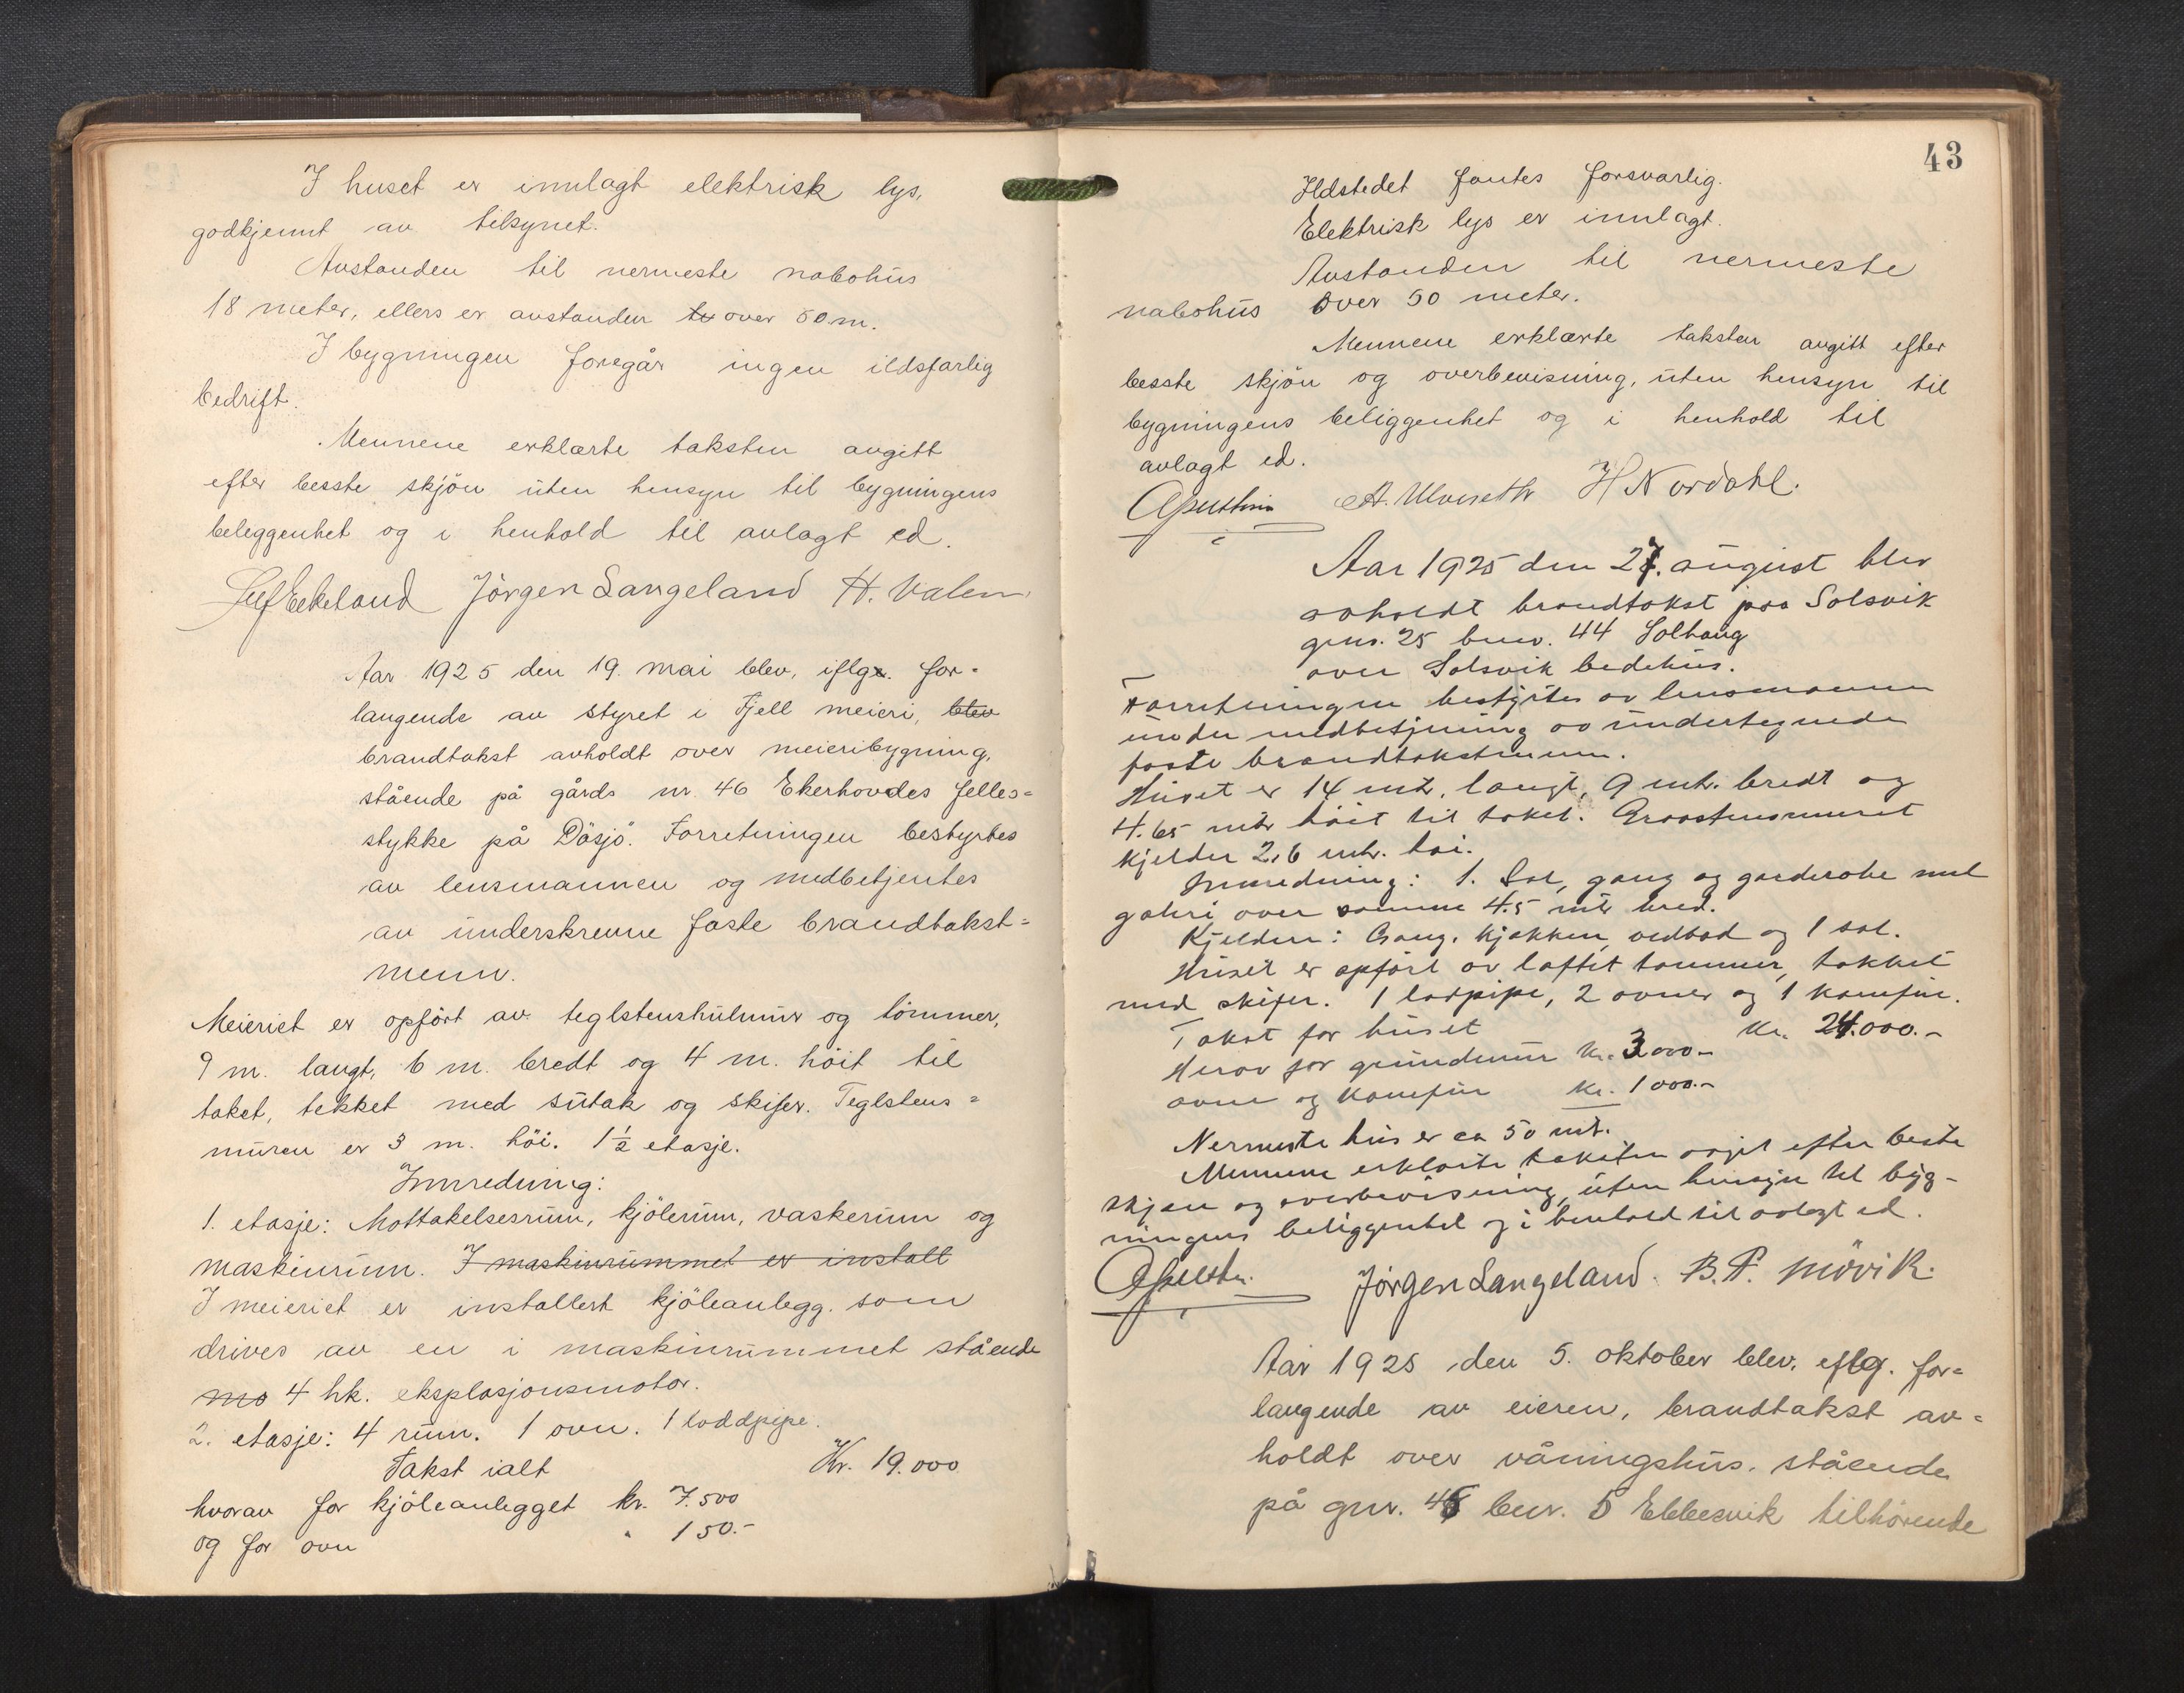 I huset er innlagt elektrisk lys,
godkjennt av tilsynet.
Avstanden til nermeste nabohus
18 meter, ellers er avstanden to over 50 m.
I bygningen foregår ingen ildsfarlig
bedrift.
Mennene erklærte taksten avgitt
efter besste skjön uten hensyn til bygningens
beleggenhet og i henhold til avlagt ed.
Jörgen Langeland H. Valen
Aar 1925 den 19. mai blev, iflg. for-
langende av styret i Fjell meieri, blev
brandtakst avholdt over meieribygning,
stående på gårds nr. 46 Ekerhovdes felles-
stykke på Dösjö. Forretningen bestyrtes
av lensmannen og medbetjentes
av underskrevne faste brandtakst-
menn.
Meieriet er opfört av teglstenshulmur og tömmer,
9 m. langt, 6 m. bredt og 4 m. höit til
taket, tekket med sutak og skifer. Teglstens-
muren er 3 m. höi. 1½ etasje.
Innredning:
1. etasje: Mottakelsesrum, kjölerum, vaskerum og
maskinrum. I maskinrummet er installt
I meieriet er installert kjöleanlegg. som
drives av en i maskinrummet stående
mo 4 hk. eksplosjonsmotor.
2. etasje: 4 rum. 1 ovn. 1 loddpipe.
Takst ialt Kr. 19.000
hvorav for kjöleanlegget kr. 7.500
og for ovn " 150.-
43
Ildstedet fantes forsvarlig.
Elektrisk lys er innlagt.
Avstanden til nermeste
nabohus over 50 meter.
Mennene erklærte taksten avgitt efter
besste skjön og overbevisning, uten hensyn til
bygningens beliggenhet og i henhold til
avlagt ed.
A. Ulveseth H Nordahl.
Aar 1925 den 27. august blev
avholdt brandtakst paa Solsvik
gnr. 25 bnr. 44 Solhaug
over Solsvik bedehus.
Forretningen bestyrtes av lensmannen
under medbetjening av undertegnede
faste brandtakstmenn.
Huset er 14 mtr. langt, 9 mtr. bredt og
4.65 mtr höit til taket. Graastensmuret
kjelder 2,6 mtr. höi.
Innredning: 1. Sal, gang og garderobe med
galeri over samme 4.5 mtr bred.
Kjelder: Gang, kjøkken, vedbod og 1 sal.
Huset er opfört av laftet tömmer, tekket
med skifer. 1 lodpipe, 2 ovner og 1 komfur.
Takst for huset Kr. 24.000.-
Herav for grundmur kr. 3000.-
ovne og komfur kr. 1000.-
Nermeste hus er ca 50 mtr.
Mennene erklærte taksten avgit efter beste
skjøn og overbevisning, uten hensyn til byg-
ningens beliggenhet og i henhold til avlagt ed.
Jørgen Langeland. B. P. Mövik.
Aar 1925 den 5. oktober blev, eflg. for-
langende av eieren, brandtakst av-
holdt over våningshus, stående
på gnr. bnr. 5 Ebbesvik tilhörende